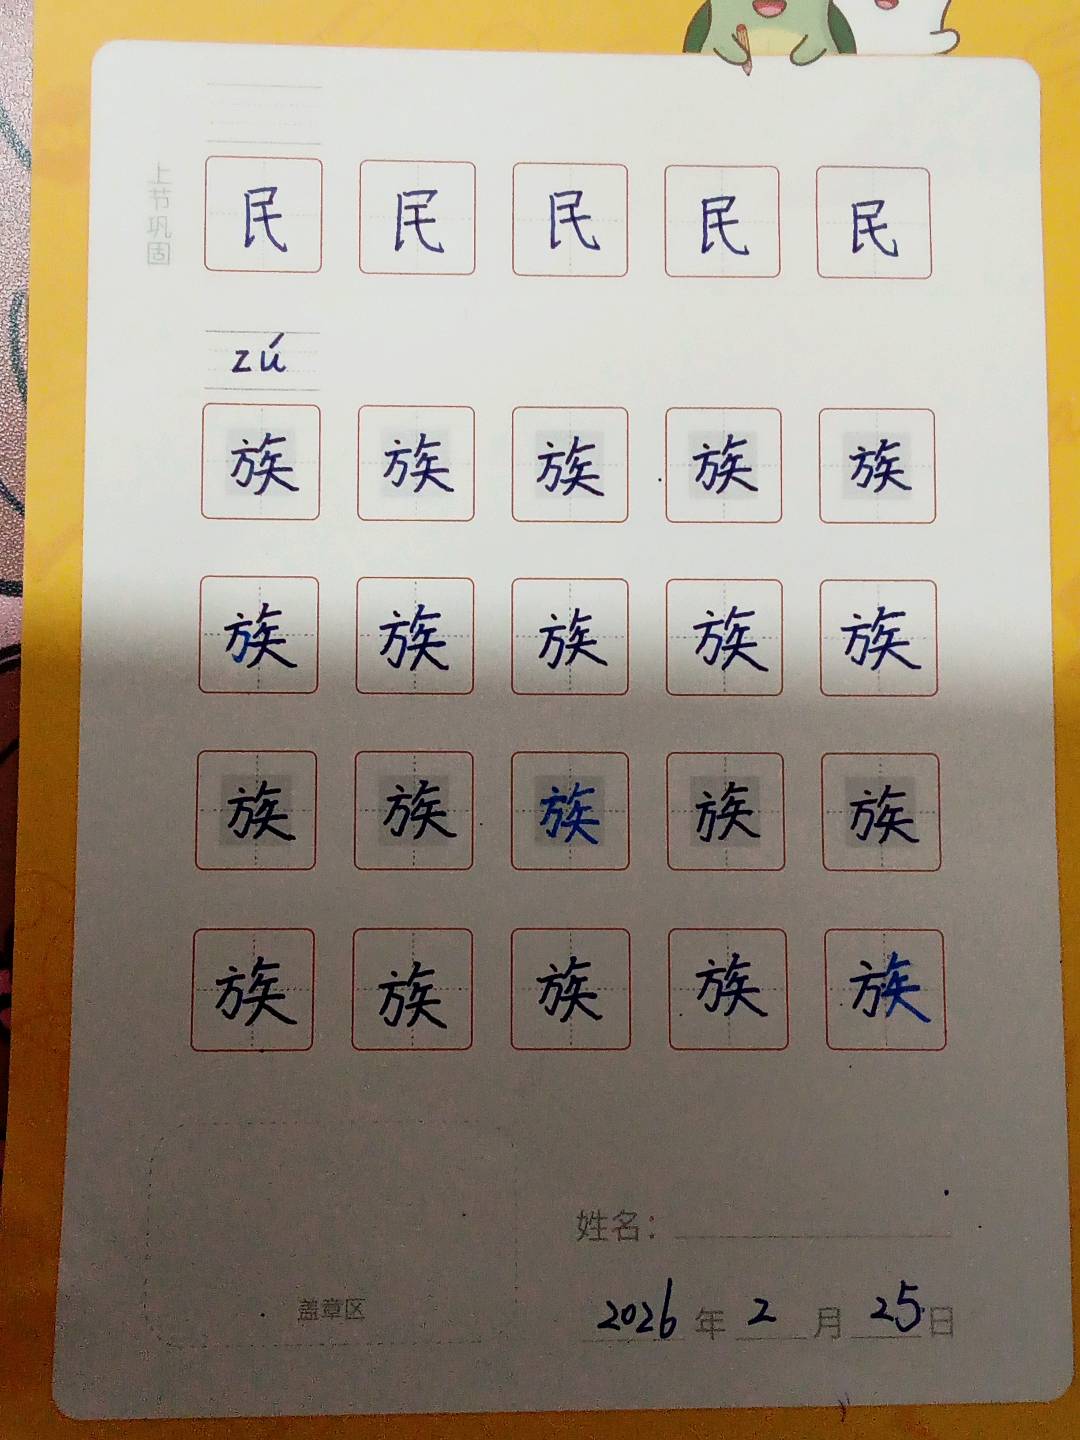 上节巩固
民 民 民 民 民
zú
族 族 族 族 族
族 族 族 族 族
族 族 族 族 族
族 族 族 族 族
姓名：
盖章区
2026 年 2 月 25 日